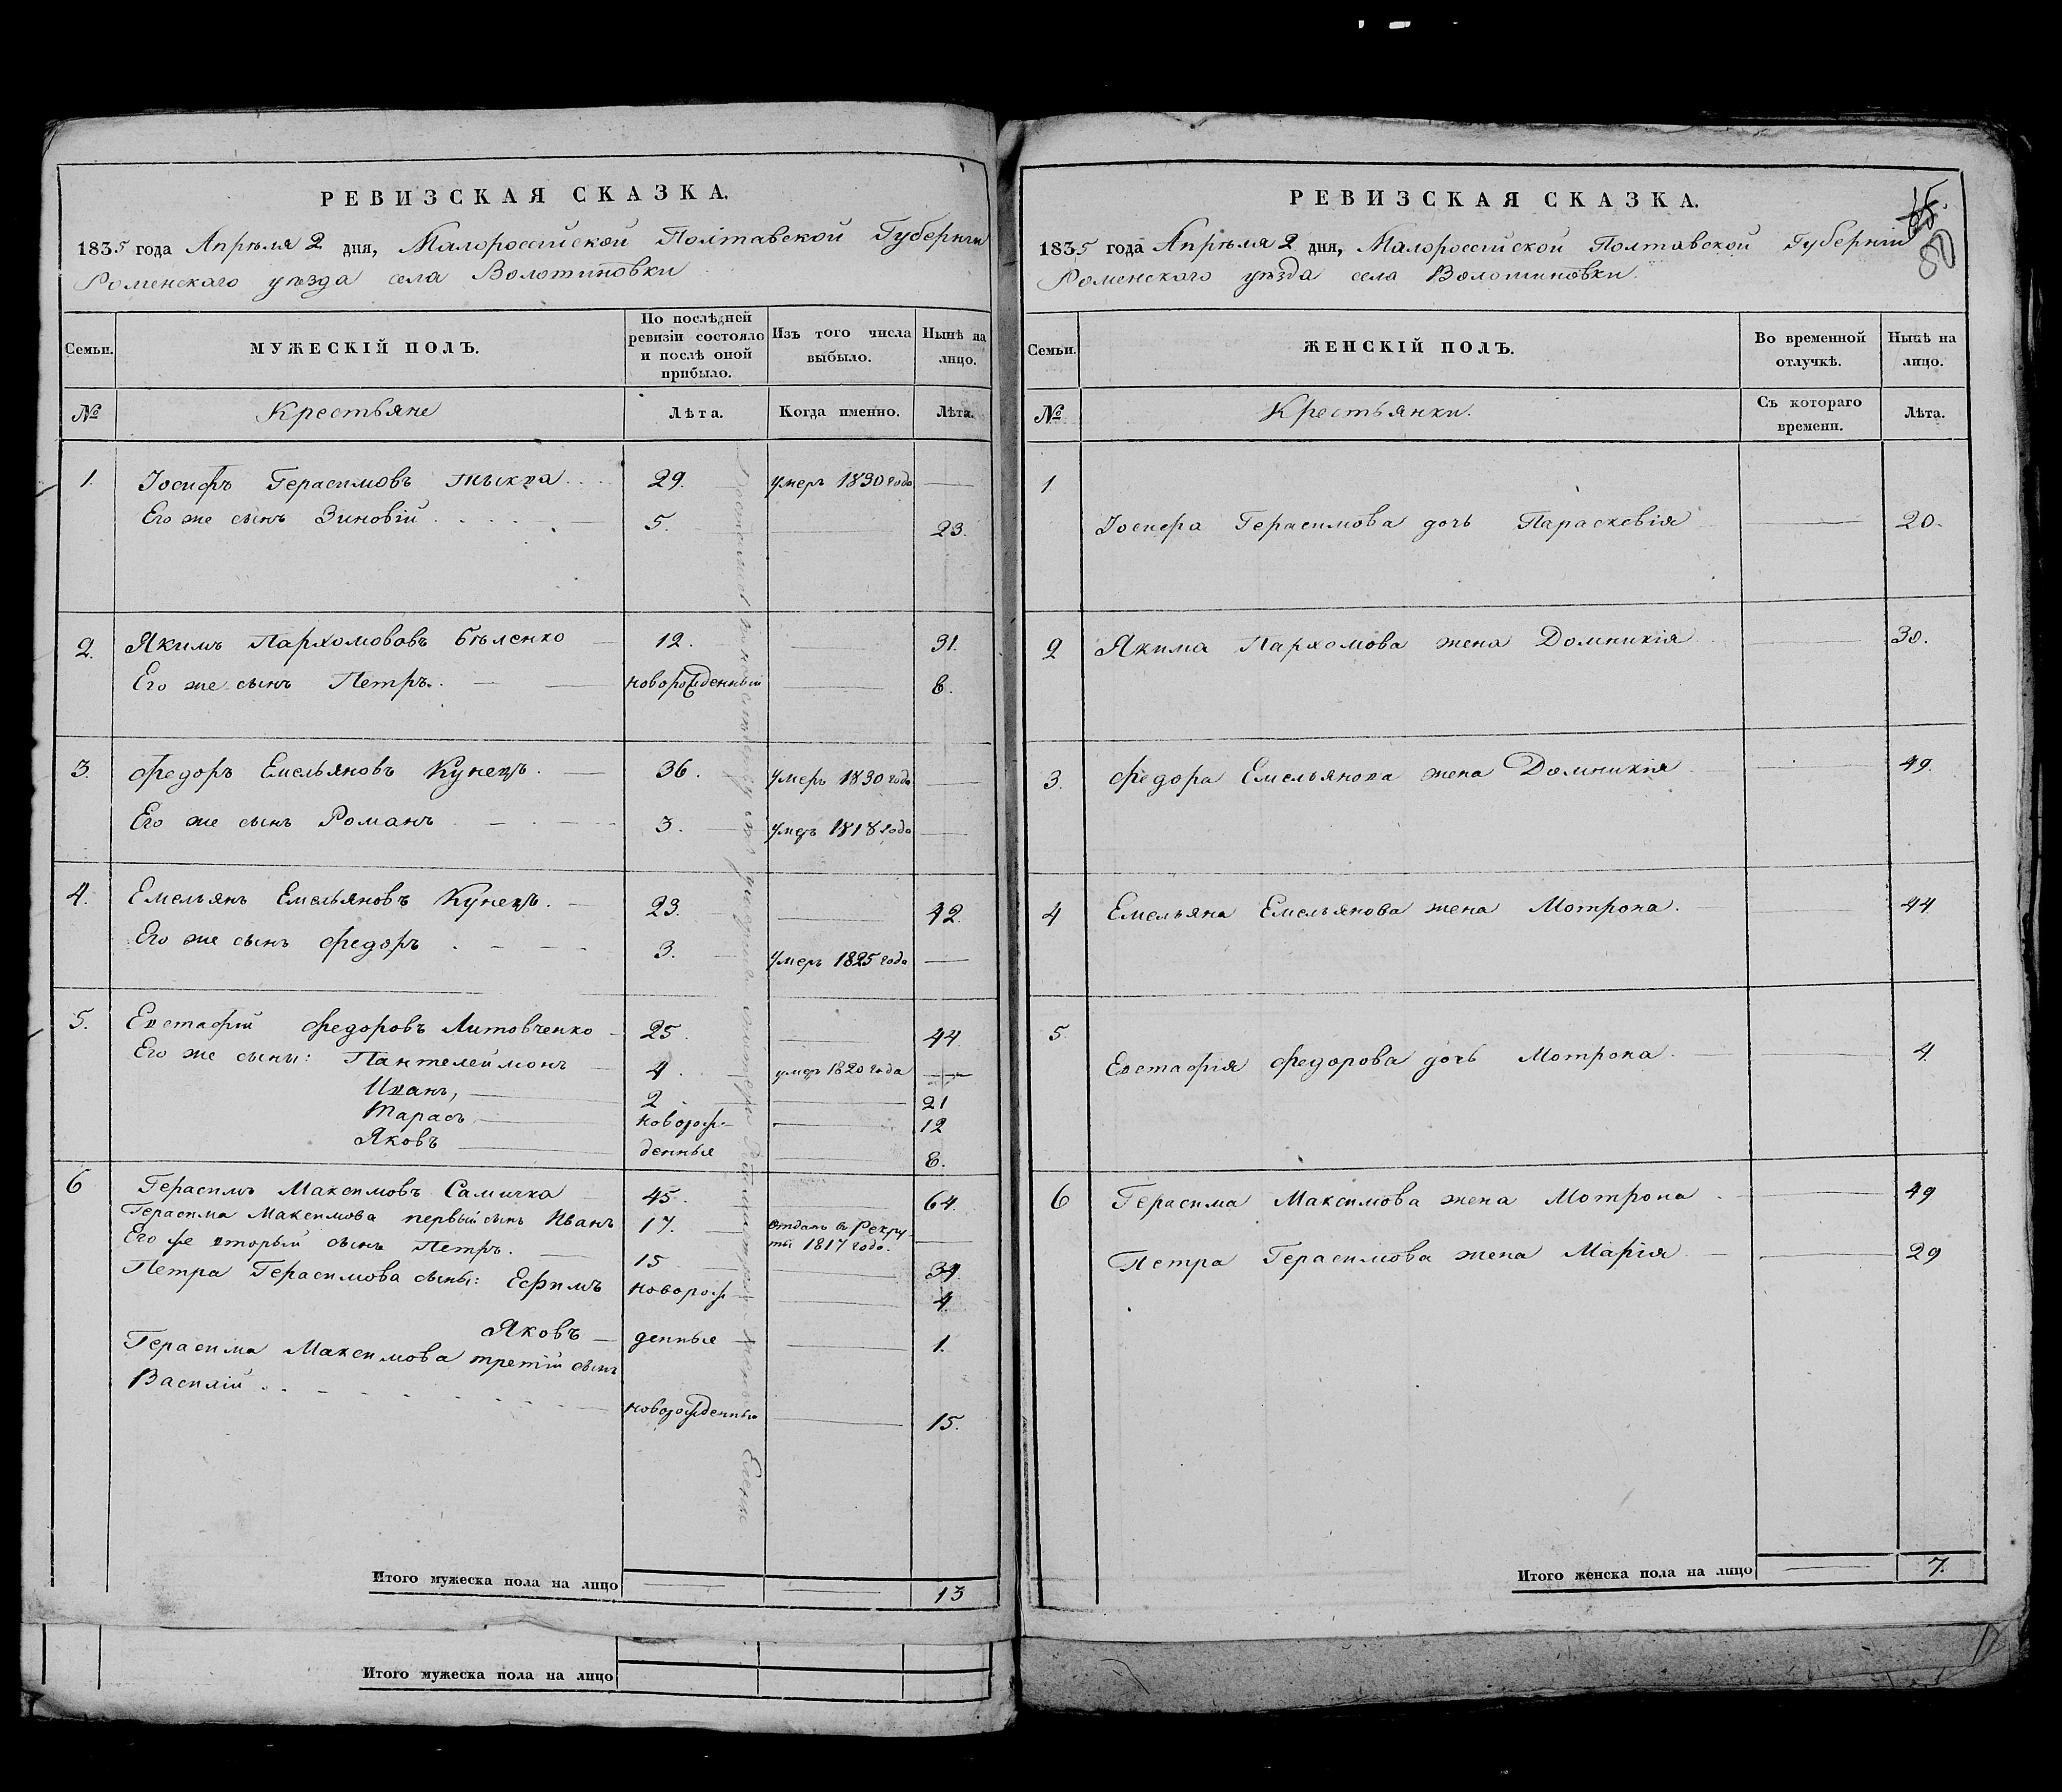 РЕВИЗСКАЯ СКАЗКА.
1835 года Апрѣля 2 дня, Малороссійской Полтавской Губерніи
Роменскаго уѣзда села Волошиновки
Семьи.
МУЖЕСКІЙ ПОЛЪ.
По послѣдней ревизіи состояло и послѣ оной прибыло.
Изъ того числа выбыло.
Нынѣ на лицо.
№
Крестьяне
Лѣта.
Когда именно.
Лѣта.
1. Іосифъ Герасимовъ Тыква 29. умеръ 1830 года —
Его же сынъ Зиновій 5. — 23.
2. Якимъ Пархомововъ Бѣленко 12. — 31.
Его же сынъ Петръ. новорожденный — 8.
3. Федоръ Емельяновъ Кунецъ. 36. умеръ 1830 года —
Его же сынъ Романъ 3. умеръ 1818 года —
4. Емельянъ Емельяновъ Кунецъ. 23. — 42.
Его же сынъ Федоръ 3. умеръ 1825 года —
5. Евстафій Федоровъ Литовченко 25. — 44
Его же сыны: Пантелеймонъ 4. умеръ 1820 года —
Иванъ, 2. — 21
Тарасъ новорож- — 12
Яковъ денные — 8.
6 Герасимъ Максимовъ Самичка 45. — 64.
Герасима Максимова первый сынъ Иванъ 17. отданъ въ Рекру
ты 1817 года. —
Его же вторый сынъ Петръ. 15 — 34.
Петра Герасимова сыны: Ефимъ новорож — 4.
Яковъ — денные — 1.
Герасима Максимова третій сынъ
Василій новорожденный — 15.
Итого мужеска пола на лицо — — 13
Итого мужеска пола на лицо
РЕВИЗСКАЯ СКАЗКА.
80
1835 года Апрѣля 2 дня, Малороссійской Полтавской Губерніи
Роменскаго уѣзда села Волошиновки.
Семьи.
ЖЕНСКІЙ ПОЛЪ.
Во временной отлучкѣ.
Нынѣ на лицо.
№
Крестьянки.
Съ котораго времени.
Лѣта.
1
Іосифа Герасимова дочь Параскевія — 20.
2 Якима Пархомова жена Домникія — 30.
3. Федора Емельянова жена Домникія — 49.
4 Емельяна Емельянова жена Мотрона. — 44
5
Евстафія Федорова дочь Мотрона. — 4.
6 Герасима Максимова жена Мотрона — 49
Петра Герасимова жена Марія — 29
Итого женска пола на лицо — 7.